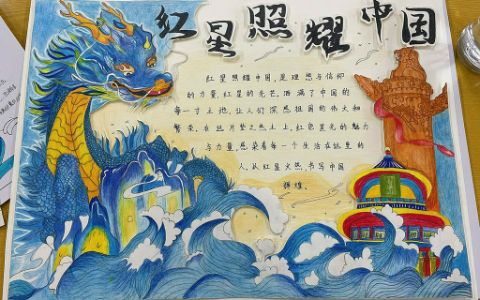 红星照耀中国
红星照耀中国,是理想与信仰
的力量,红星的光芒,洒满了中国的
每一寸土地,让人们深感祖国的伟大和
繁荣,在这片坚定热土上,红色星光的魅力
与力量,感染着每一个生活在这里的
人,从红星火然,书写中国
辉煌。